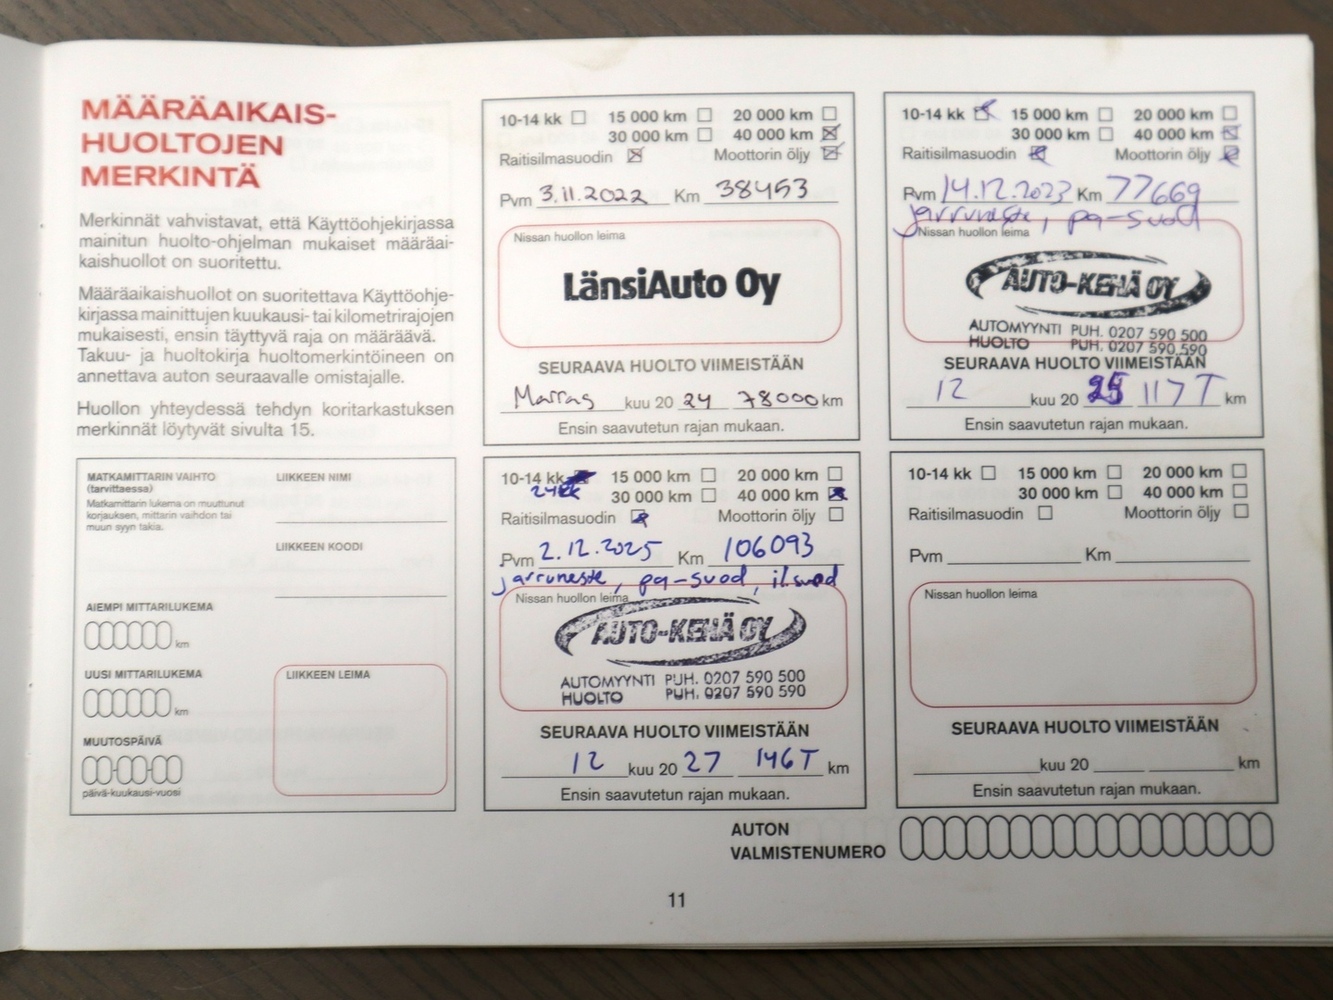 MÄÄRÄAIKAIS-
HUOLTOJEN
MERKINTÄ
Merkinnät vahvistavat, että Käyttöohjekirjassa
mainitun huolto-ohjelman mukaiset määräai-
kaishuollot on suoritettu.
Määräaikaishuollot on suoritettava Käyttöohje-
kirjassa mainittujen kuukausi- tai kilometrirajojen
mukaisesti, ensin täyttyvä raja on määräävä.
Takuu- ja huoltokirja huoltomerkintöineen on
annettava auton seuraavalle omistajalle.
Huollon yhteydessä tehdyn koritarkastuksen
merkinnät löytyvät sivulta 15.
MATKAMITTARIN VAIHTO
(tarvittaessa)
Matkamittarin lukema on muuttunut
korjauksen, mittarin vaihdon tai
muun syyn takia.
LIIKKEEN NIMI
LIIKKEEN KOODI
AIEMPI MITTARILUKEMA
km
UUSI MITTARILUKEMA
km
MUUTOSPÄIVÄ
päivä-kuukausi-vuosi
LIIKKEEN LEIMA
10-14 kk 15 000 km 20 000 km
30 000 km 40 000 km
Raitisilmasuodin Moottorin öljy
Pvm 3.11.2022 Km 38453
Nissan huollon leima
LänsiAuto Oy
SEURAAVA HUOLTO VIIMEISTÄÄN
Marras kuu 20 24 78000 km
Ensin saavutetun rajan mukaan.
10-14 kk 15 000 km 20 000 km
30 000 km 40 000 km
Raitisilmasuodin Moottorin öljy
Pvm 14.12.2023 Km 77669
jarruneste, pa-suod
Nissan huollon leima
AUTO-KEHÄ OY
AUTOMYYNTI PUH. 0207 590 500
HUOLTO PUH. 0207 590 590
SEURAAVA HUOLTO VIIMEISTÄÄN
12 kuu 20 25 117 T km
Ensin saavutetun rajan mukaan.
10-14 kk 15 000 km 20 000 km
24kk 30 000 km 40 000 km
Raitisilmasuodin Moottorin öljy
Pvm 2.12.2025 Km 106093
jarruneste, pa-suod, il.suod
Nissan huollon leima
AUTO-KEHÄ OY
AUTOMYYNTI PUH. 0207 590 500
HUOLTO PUH. 0207 590 590
SEURAAVA HUOLTO VIIMEISTÄÄN
12 kuu 20 27 146 T km
Ensin saavutetun rajan mukaan.
10-14 kk 15 000 km 20 000 km
30 000 km 40 000 km
Raitisilmasuodin Moottorin öljy
Pvm Km
Nissan huollon leima
SEURAAVA HUOLTO VIIMEISTÄÄN
kuu 20 km
Ensin saavutetun rajan mukaan.
AUTON
VALMISTENUMERO
11